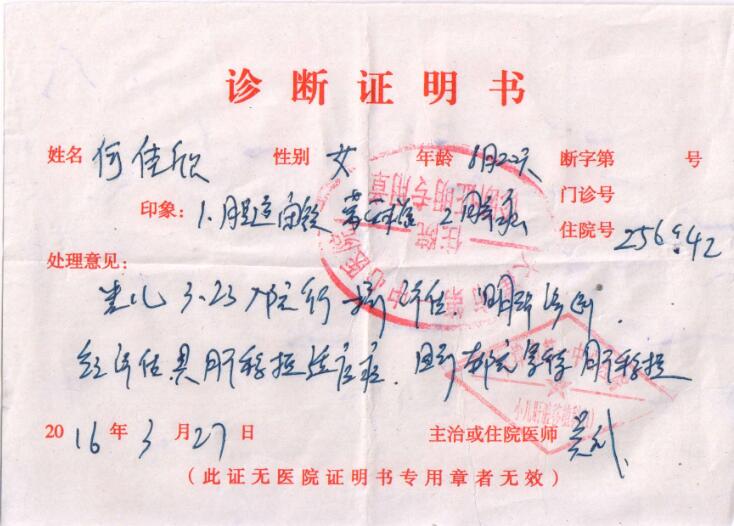 诊断证明书
姓名 何佳欣 性别 女 年龄 8月22天 断字第 号
门诊号
印象: 1.胆道闭锁 葛西术后 2.
住院号 256942
处理意见:
患儿 3.23 入院行 评估. 明确诊断.
经评估具肝移植适应症. 肝移植
2016年3月27日 主治或住院医师
(此证无医院证明书专用章者无效)